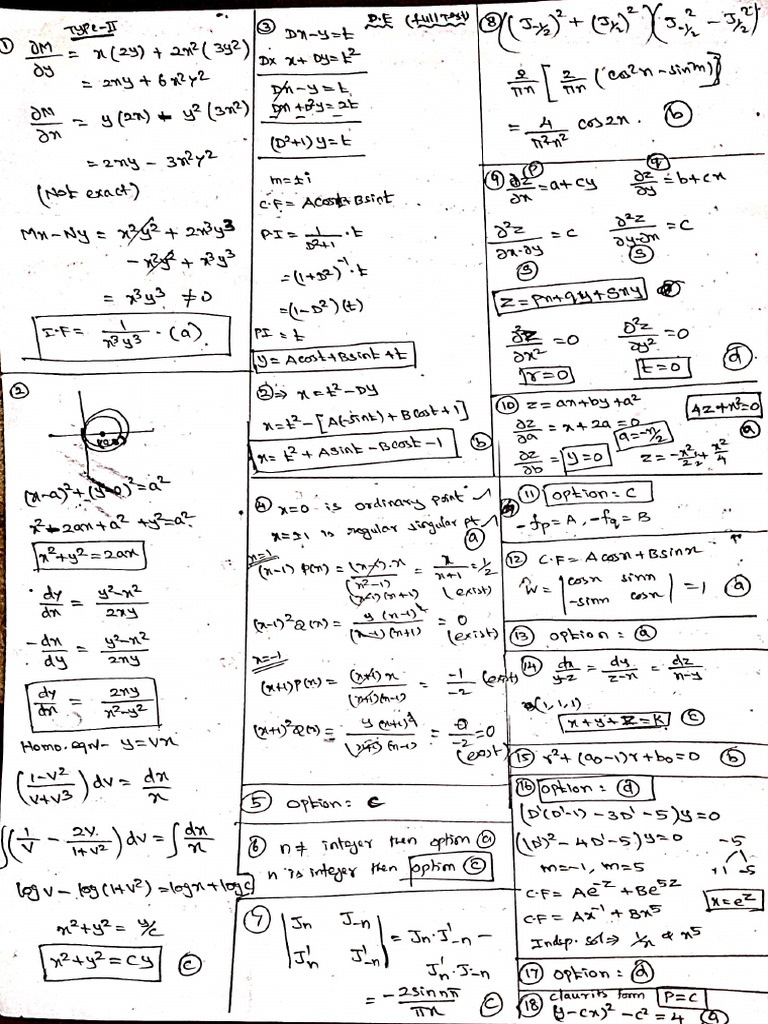 Type-II
① ∂M/∂y = x(2y) + 2x²(3y²)
= 2xy + 6x²y²
∂M/∂x = y(2x) - y²(3x²)
= 2xy - 3x²y²
(Not exact)
Mx - Ny = x²y² + 2x³y³
- x²y² + x³y³
= x³y³ ≠ 0
I.F = 1/x³y³ . (a)
②
(x-a)² + (y-0)² = a²
x² - 2ax + a² + y² = a²
x² + y² = 2ax
dy/dx = y²-x²/2xy
-dx/dy = y²-x²/2xy
dy/dx = 2xy/x²-y²
Homo. eqn - y = vx
(1-v²/v+v³) dv = dx/x
∫(1/v - 2v/1+v²) dv = ∫dx/x
log v - log(1+v²) = log x + log c
x² + y² = y/c
x² + y² = cy ⓒ
D.E (full Test)
③ Dx - y = t
Dx x + Dy = t²
Dx - y = t
Dx + D²y = 2t
(D²+1) y = t
m = ±i
C.F = A cost + B sint
PI = 1/D²+1 . t
= (1+D²)⁻¹ . t
= (1-D²)(t)
PI = t
y = A cost + B sint + t
② ⇒ x = t² - Dy
x = t² - [A(-sint) + B cost + 1]
x = t² + A sint - B cost - 1 ⓑ
④ x=0 is ordinary point ✓
x=±1 is regular singular pt ✓
ⓐ
x=1
(x-1) P(x) = (x-1).x/(x²-1) = x/x+1 = 1/2
(x-1)(x+1) (exist)
(x-1)² Q(x) = y(x-1)²/(x-1)(x+1) = 0
(exist)
x=-1
(x+1) P(x) = (x+1)x/(x+1)(x-1) = -1/-2 (exist)
(x+1)² Q(x) = y(x+1)²/(x+1)(x-1) = 0/-2 = 0
(exist)
⑤ option: c
⑥ n ≠ integer then option ⓐ
n is integer then option ⓒ
⑦ | Jn J-n |
| J'n J'-n | = Jn . J'-n -
J'n . J-n
= -2 sin nπ/πx ⓒ
⑧ ((J-1/2)² + (J1/2)²)(J-1/2² - J1/2²)
2/πx [2/πx (cos²x - sin²x)]
= 4/π²x² cos2x. ⓑ
⑨ ∂z/∂x = a + cy ∂z/∂y = b + cx
∂²z/∂x.∂y = c ∂²z/∂y.∂x = c
Ⓢ Ⓢ
z = px + qy + sxy
∂²z/∂x² = 0 ∂²z/∂y² = 0
r = 0 t = 0 ⓓ
⑩ z = ax + by + a² 4z + x² = 0
∂z/∂a = x + 2a = 0 a = -x/2 ⓐ
∂z/∂b = y = 0 z = -x²/2 + x²/4
⑪ option = c
-fp = A, -fq = B
⑫ C.F = A cosx + B sinx
W = | cosx sinx |
| -sinx cosx | = 1 ⓐ
⑬ option: ⓐ
⑭ dx/y-z = dy/z-x = dz/x-y
(1,1,1)
x + y + z = K ⓒ
⑮ r² + (a₀-1)r + b₀ = 0 ⓑ
⑯ option: ⓓ
(D'(D'-1) - 3D' - 5)y = 0
((D')² - 4D' - 5)y = 0 -5
m = -1, m = 5 +1 -5
C.F = Ae⁻ᶻ + Be⁵ᶻ x = eᶻ
C.F = Ax⁻¹ + Bx⁵
Indep. sol ⇒ 1/x & x⁵
⑰ option: ⓓ
⑱ claurits form P = c
(y-cx)² - c² = 4 ⓐ